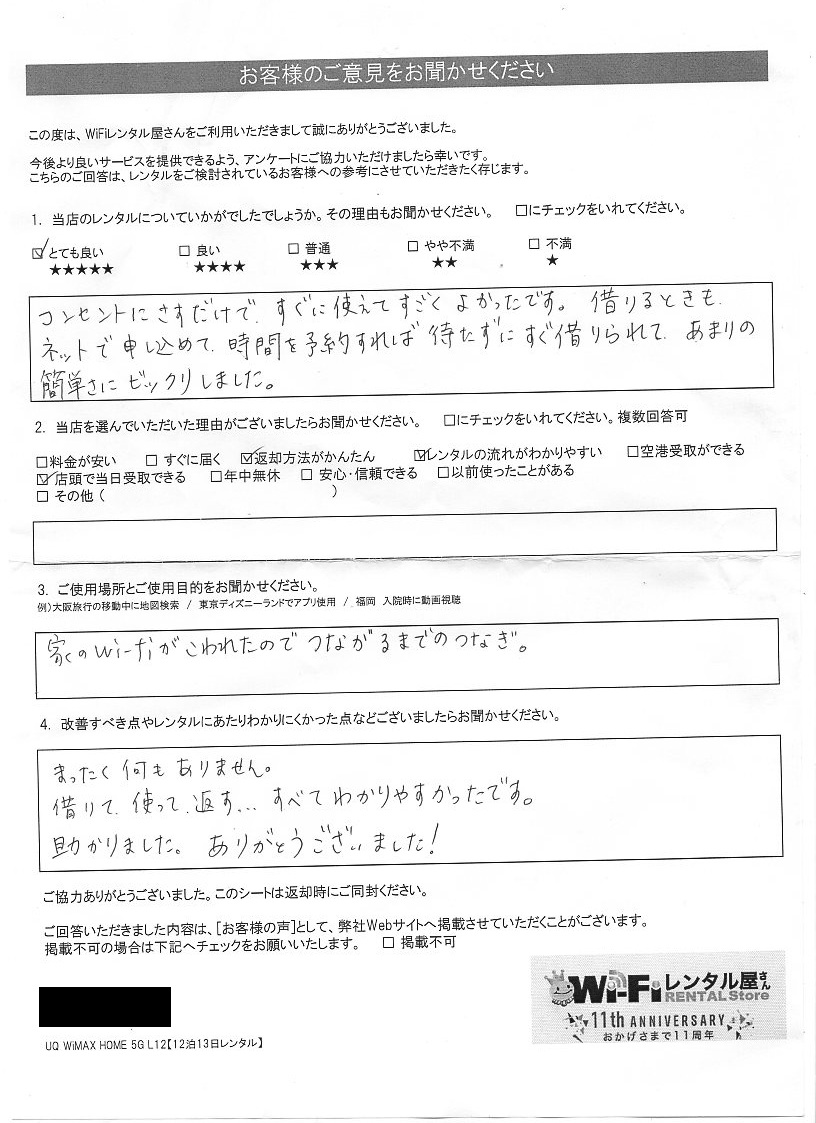 お客様のご意見をお聞かせください
この度は、WiFiレンタル屋さんをご利用いただきまして誠にありがとうございました。
今後より良いサービスを提供できるよう、アンケートにご協力いただけましたら幸いです。
こちらのご回答は、レンタルをご検討されているお客様への参考にさせていただきたく存じます。
1. 当店のレンタルについていかがでしたでしょうか。その理由もお聞かせください。 □にチェックをいれてください。
☑ とても良い □ 良い □ 普通 □ やや不満 □ 不満
★★★★★ ★★★★ ★★★ ★★ ★
コンセントにさすだけで、すぐに使えてすごくよかったです。借りるときも、
ネットで申し込めて、時間を予約すれば待たずにすぐ借りられて、あまりの
簡単さにビックリしました。
2. 当店を選んでいただいた理由がございましたらお聞かせください。 □にチェックをいれてください。複数回答可
□料金が安い □ すぐに届く ☑返却方法がかんたん ☑レンタルの流れがわかりやすい □空港受取ができる
☑店頭で当日受取できる □年中無休 □ 安心・信頼できる □以前使ったことがある
□ その他 ( )
3. ご使用場所とご使用目的をお聞かせください。
例)大阪旅行の移動中に地図検索 / 東京ディズニーランドでアプリ使用 / 福岡 入院時に動画視聴
家のWi-fiがこわれたのでつながるまでのつなぎ。
4. 改善すべき点やレンタルにあたりわかりにくかった点などございましたらお聞かせください。
まったく何もありません。
借りて、使って、返す... すべてわかりやすかったです。
助かりました。ありがとうございました!
ご協力ありがとうございました。このシートは返却時にご同封ください。
ご回答いただきました内容は、[お客様の声]として、弊社Webサイトへ掲載させていただくことがございます。
掲載不可の場合は下記へチェックをお願いいたします。 □ 掲載不可
Wi-Fiレンタル屋さん
RENTAL Store
11th ANNIVERSARY
おかげさまで11周年
UQ WiMAX HOME 5G L12【12泊13日レンタル】